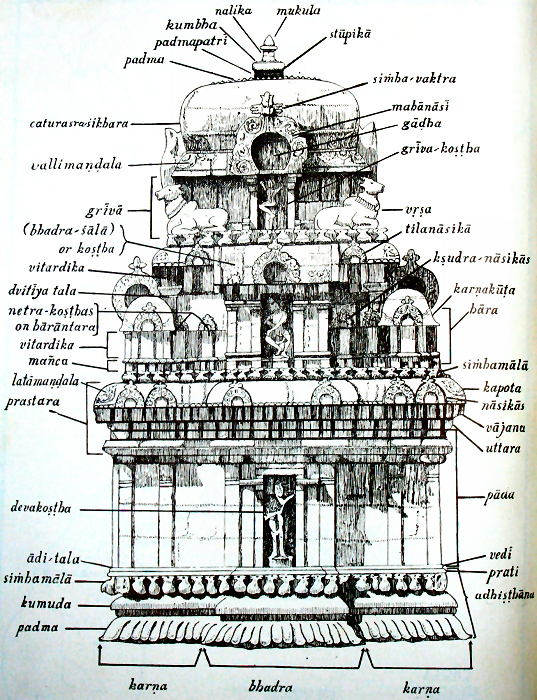 nalika
mukula
kumbha
stūpikā
padmapatrī
padma
siṁha-vaktra
mahānāsī
gāḍha
caturasra-śikhara
grīva-koṣṭha
vallimaṇḍala
grīvā
vṛṣa
(bhadra-śālā)
or koṣṭha
tilanāsikā
kṣudra-nāsikās
vitardika
dvitīya tala
karṇakūṭa
netra-koṣṭhas
on hārāntara
hāra
vitardika
mañca
siṁhamālā
latāmaṇḍala
kapota
prastara
nāsikās
vājana
uttara
pāda
devakoṣṭha
ādi-tala
vedi
siṁhamālā
prati
adhiṣṭhāna
kumuda
padma
karṇa
bhadra
karṇa